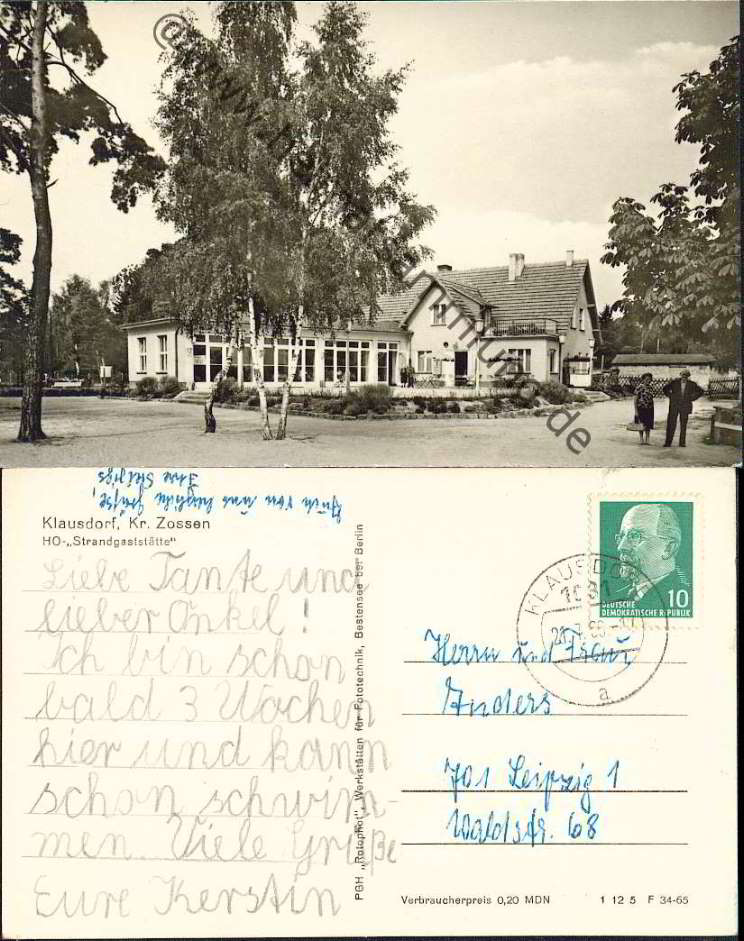 Auch von uns herzliche Grüße,
Klausdorf, Kr. Zossen
HO-„Strandgaststätte"
Liebe Tante und
lieber Onkel!
Ich bin schon
bald 3 Wochen
hier und kann
schon schwim-
men. Viele Grüße
Eure Kerstin
PGH „Rotophot", Werkstätten für Fototechnik, Bestensee bei Berlin
DEUTSCHE
DEMOKRATISCHE REPUBLIK
10
KLAUSDORF
1631
a
Herrn und Frau
Anders
701 Leipzig 1
Waldstr. 68
Verbraucherpreis 0,20 MDN
1 12 5 F 34-65